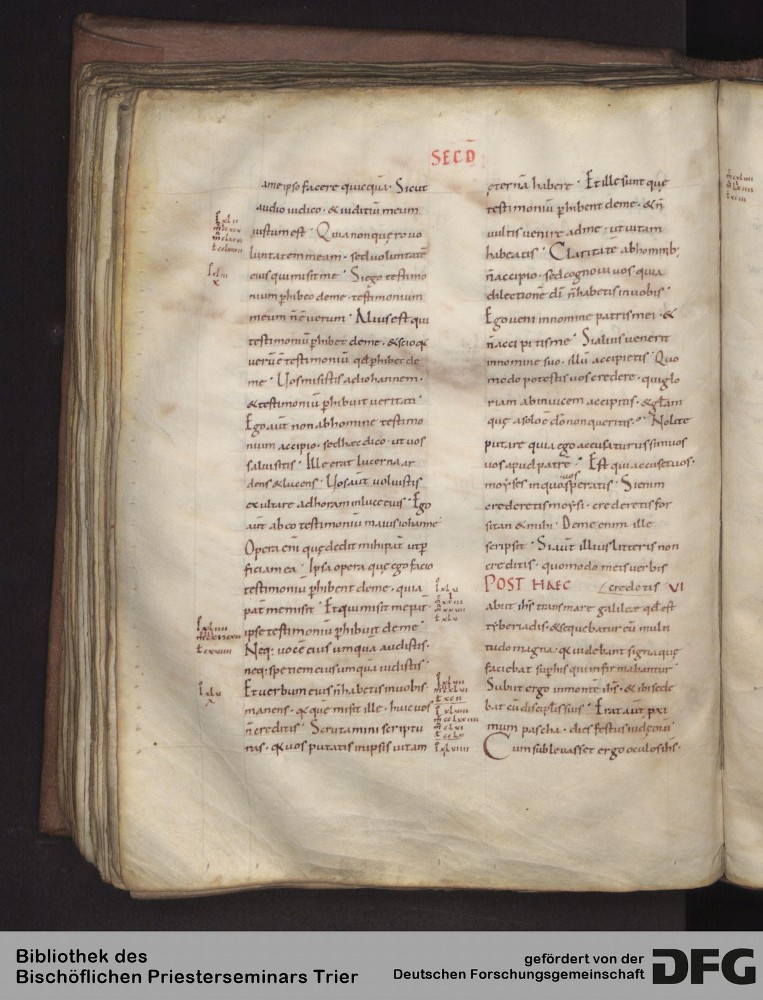 SECD̄
ame ipso facere quicquā · Sicut
audio iudico · & iuditiū meum
iustum est · Quia non quęro uo
luntatem meam · sed uoluntatē
eius qui misit me · Si ego testimo
nium phibeo de me · testimonium
meum n̄ ē uerum · Alius est qui
testimoniū phibet de me · & scio q̄
uerū ē testimoniū qđ phibet de
me · Uos misistis ad iohannem ·
& testimoniū phibuit ueritati ·
Ego aūt non ab homine testimo
nium accipio · sed haec dico · ut uos
salui sitis · Ille erat lucerna ar
dens & lucens · Uos aūt uoluistis
exultare ad horam in luce eius · Ego
aūt abeo testimoniū maius iohanne
Opera eni quę dedit mihi pat̄ ut p
ficiam ea · Ipsa opera quę ego facio
testimoniū phibent de me · quia
pat̄ me misit · Et qui misit me pat̄ ·
ipse testimoniū phibuit de me ·
Neq: uocē eius umqua audistis ·
neq · spetiem eius umquā uidistis ·
Et uerbum eius n̄ habetis in uobis ·
manens · quia quę misit ille · huic uos
n̄ creditis · Scrutamini scriptu
ras · quia uos putatis in ipsis uitam
ęternā habere · Et ille sunt quę
testimoniū phibent de me · & n̄
uultis uenire ad me · ut uitam
habeatis · Claritatē ab hominib;
n̄ accipio · sed cognoui uos quia
dilectionē dī n̄ habetis in uobis ·
Ego ueni in nomine patris mei · &
n̄ accipitis me · Si alius uenerit
in nomine suo · illū accipietis · Quo
modo potestis uos credere · qui glo
riam ab inuicem accipitis · & glam
quę a solo ē dō non queritis · Nolite
putare quia ego accusaturus sim uos
uos apud patrē · Est qui accuset uos ·
moyses in quo uos speratis · Si enim
crederetis moysi · crederetis for
sitan & mihi · De me enim ille
scripsit · Si aūt illius litteris non
creditis · quomodo meis uerbis
POST HAEC / credetis VI
abiit ihs trans mare galileę qđ est
tyberiadis · & sequebatur eū multi
tudo magna · quia uidebant signa quę
faciebat sup his qui infirmabantur
Subiit ergo in montē ihs · & ibi sede
bat cū discipulis suis · Erat aūt pxi
mum pascha · dies festus iudęorū
Cum subleuasset ergo oculos ihs ·
Bibliothek des
Bischöflichen Priesterseminars Trier
gefördert von der
Deutschen Forschungsgemeinschaft
DFG